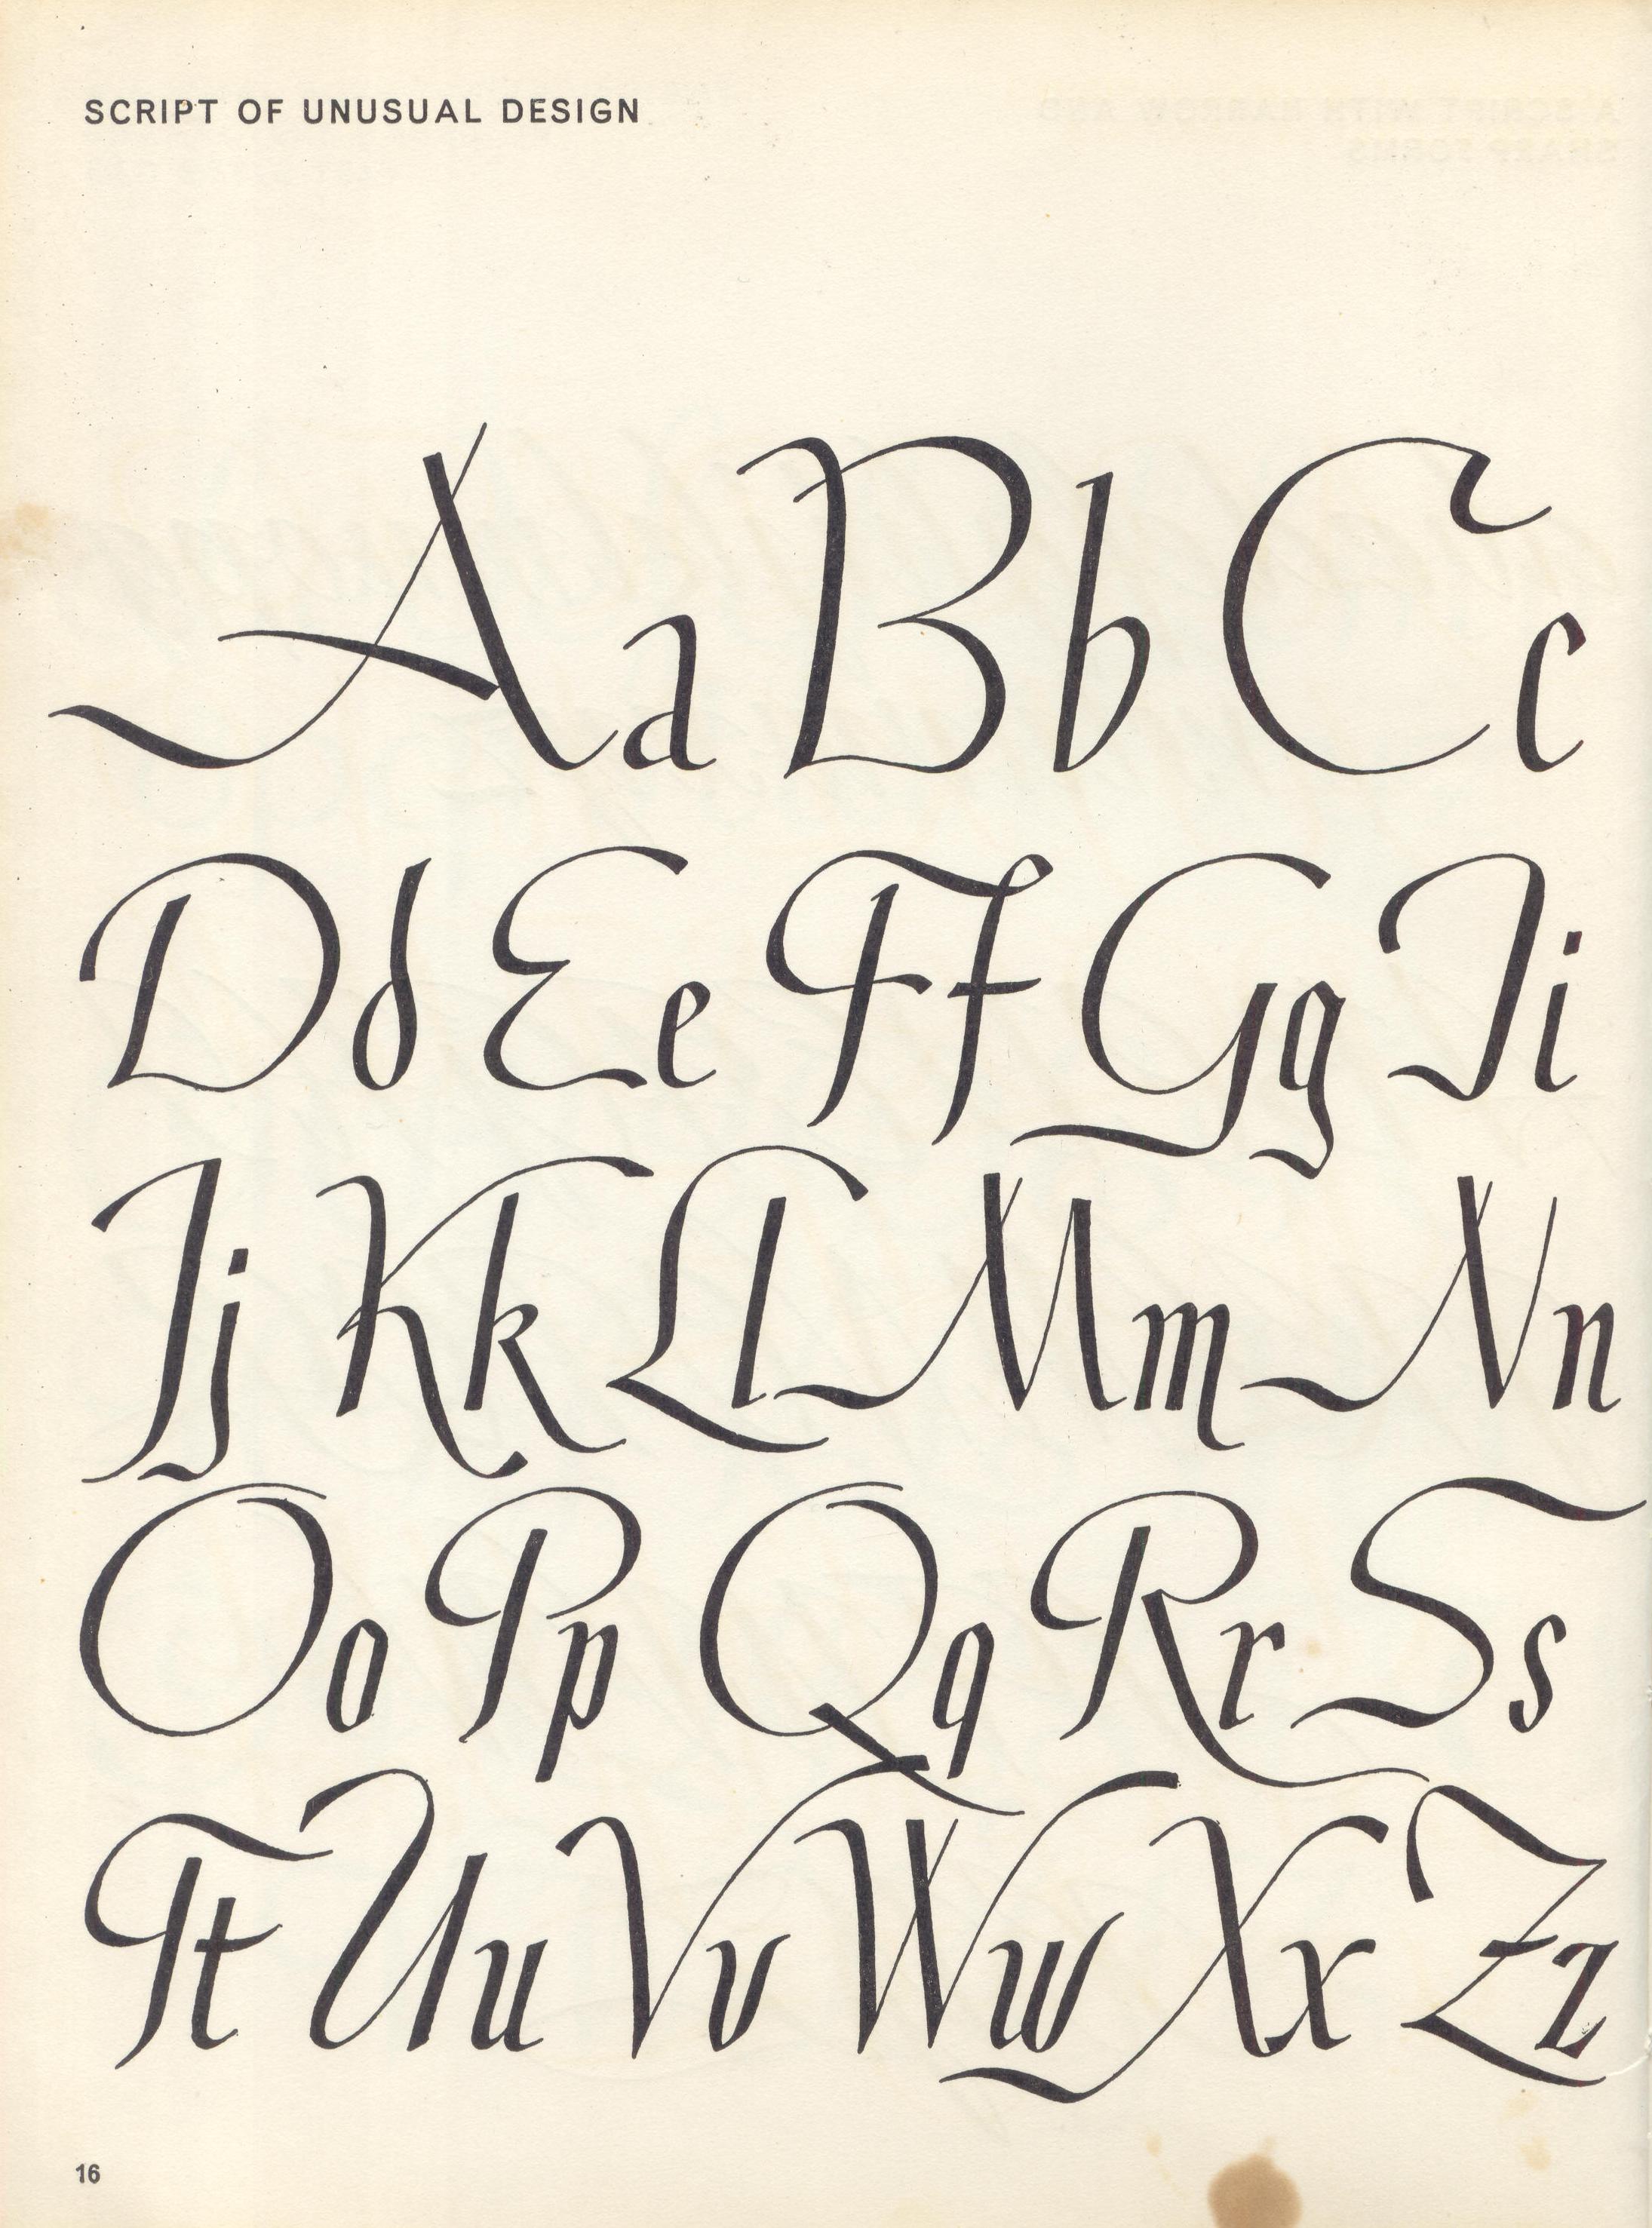 SCRIPT OF UNUSUAL DESIGN
Aa Bb Cc
Dd Ee Ff Gg Ii
Jj Kk Ll Mm Nn
Oo Pp Qq Rr Ss
Tt Uu Vv Ww Xx Zz
16